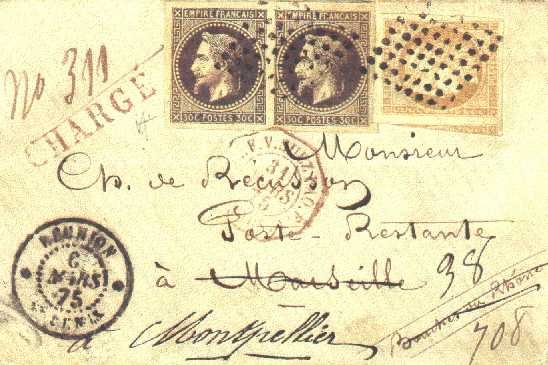 EMPIRE FRANÇAIS EMPIRE FRANÇAIS
30C POSTES 30C 30C POSTES 30C
No 311
CHARGÉ
Monsieur
Ch. de Recusson
Poste Restante
à Marseille 38
REUNION
6
MARS
75
ST DENIS
à Montpellier
Bouches du Rhône
708